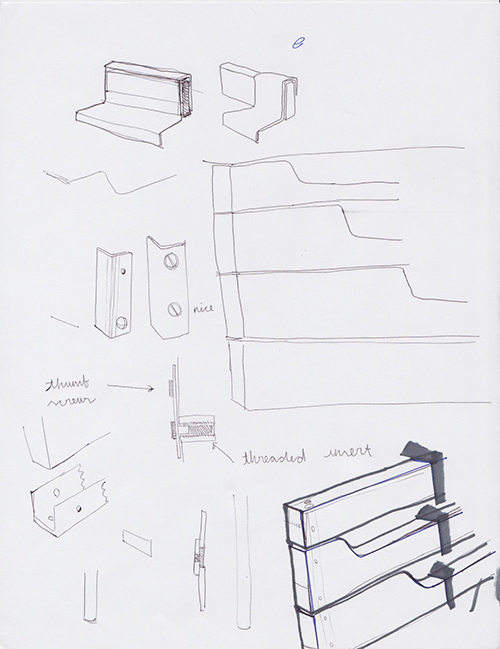 nice
thumb
screw
threaded insert